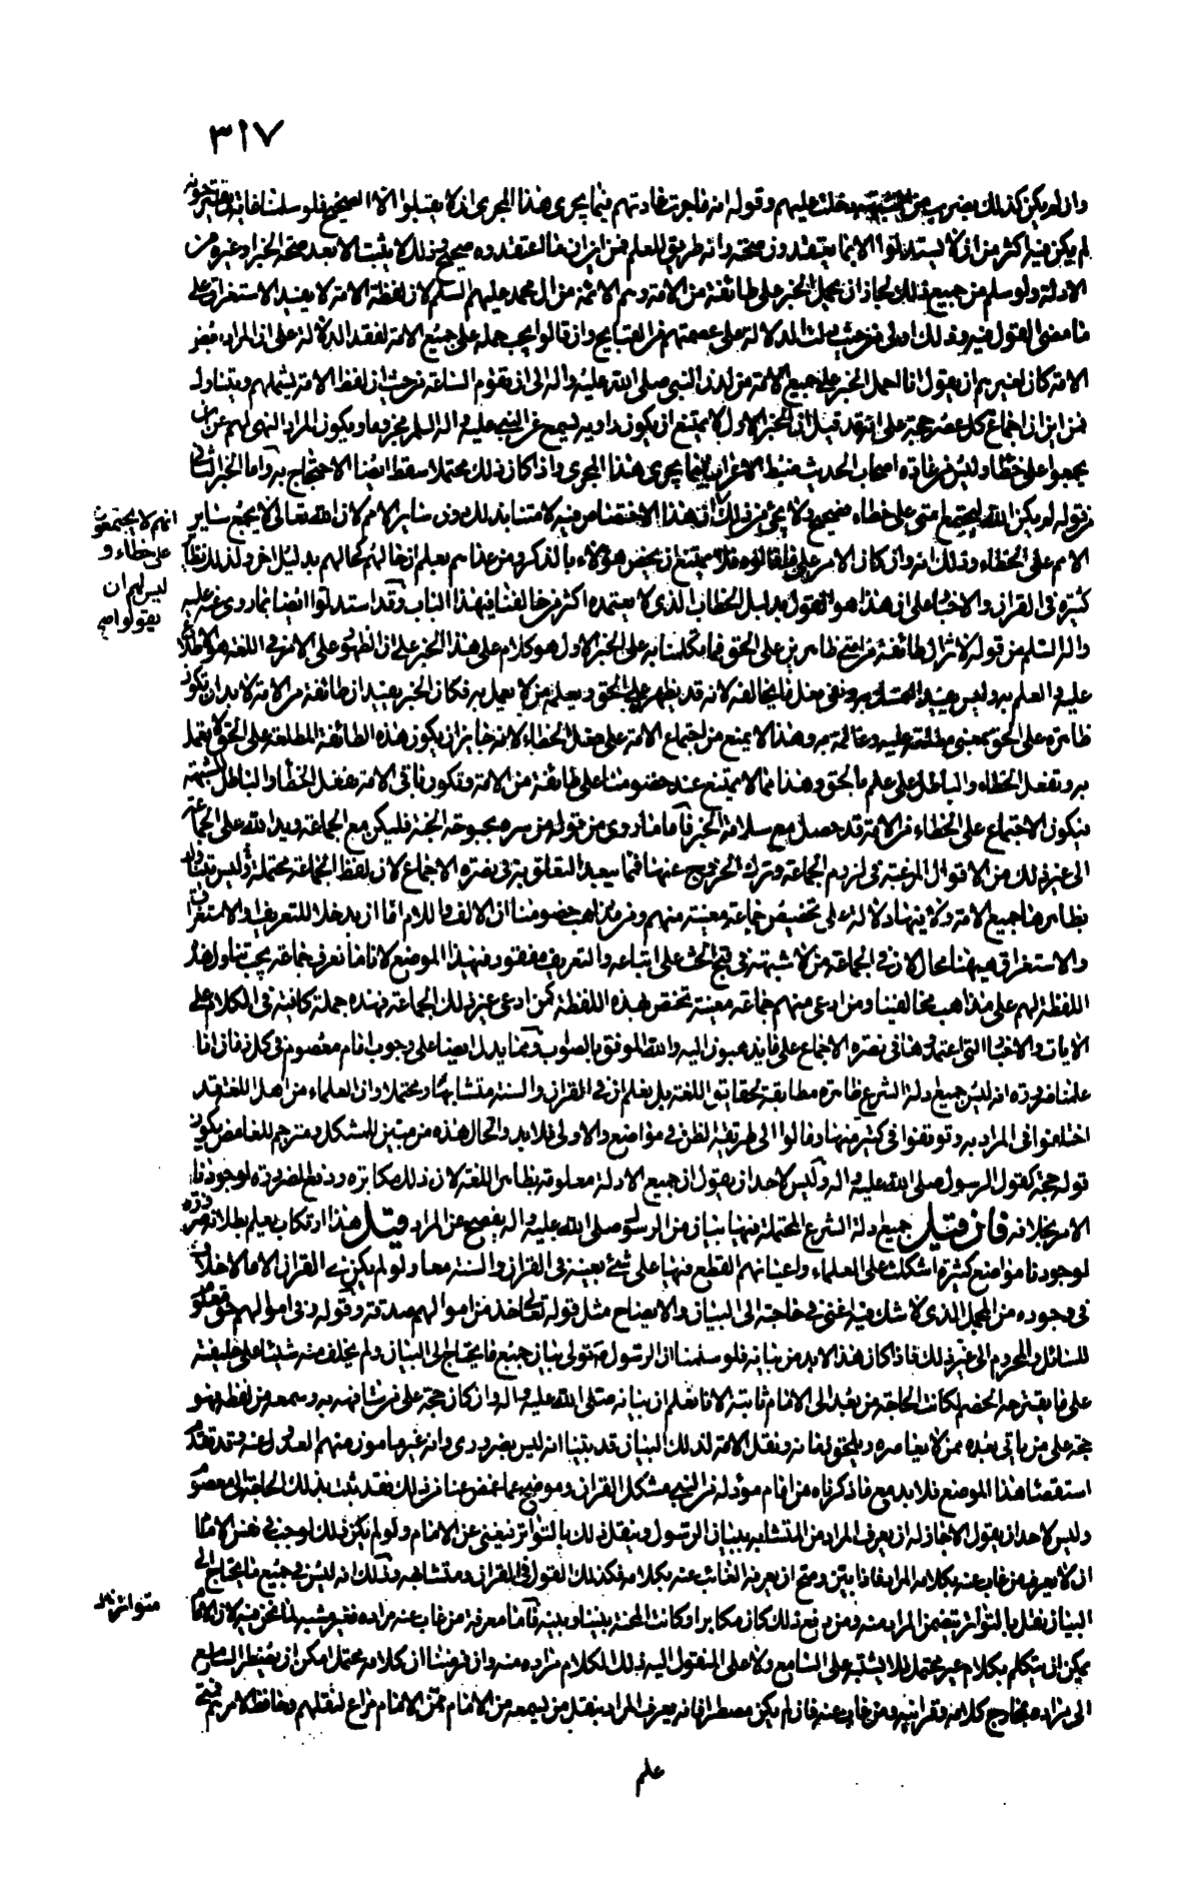 ٣١٧
وان لم يكن كذلك بضرب من الشبهة دخلت عليهم وقوله انه فاجرت عادتهم فيما يجرى هذا المجرى ان لا يقبلوا الا الصحيح فلو سلمنا فانه يحتجون به
لم يكن فيه اكثر من ان لا يستدلوا الا بما يعتقدون صحته وانه طريق للعلم فمن اين ان ما اعتقدوه صحيح وذلك لا يثبت الا بعد صحة الخبر او غيره من
الادلة ولو سلم من جميع ذلك لجاز ان يحمل الخبر على طائفة من الامة وهم الائمة من ال محمد عليهم السلم لان لفظة الامة لا يفيد الاستغراق على
ما مضى القول فيه وذلك اولى من حيث دلت الدلالة على عصمتهم من القبايح وان قالوا يجب حمله على جميع الامة لفقد الدلالة على ان المراد بعض
الامة كان لغيرهم ان يقول انا احمل الخبر على جميع الامة من لدن النبى صلى الله عليه واله الى ان يقوم الساعة من حيث ان لفظ الامة يشملهم ويتناولهم
فمن اين ان اجماع كل عصر حجة على انه قد قيل ان الخبر الاول لا يمتنع ان يكون راويه سمع من النبى عليه واله السلم مجزوما ويكون المراد النهى لهم عن ان
يجمعوا على خطأ وليس من عادة اصحاب الحديث ضبط الاعراب فيما يجرى هذا المجرى واذا كان ذلك محتملا سقط ايضا الاحتجاج به واما الخبر الثانى
من قوله لم يكن الله ليجمع امتى على خطاء فصحيح ولا يجئ من ذلك ان هذا الاختصاص فيه لامتنا بذلك دون سائر الامم لان الله تعالى لا يجمع سائر
انهم لا يجتمعون
على خطاء و
ليس لهم ان
يقولوا ان
الامم على الخطاء وذلك انه وان كان الامر على ما قالوه فلا يمتنع ان يخص هؤلاء بالذكر ومن عداهم يعلم ان حالهم كحالهم بدليل اخر ولذلك نظائر
كثيرة فى القران والاخبار على ان هذا هو القول بدليل الخطاب الذى لا يعتمده اكثر من خالفنا فى هذا الباب وقد استدلوا ايضا بما روى عنه عليه
واله السلم من قوله لا تزال طائفة من امتى ظاهرين على الحق فما تكلمنا به على الخبر الاول هو كلام على هذا الخبر على ان الظهور على الامر فى اللغة هو الاطلاع
عليه والعلم به وليس يفيد التمسك به ونفى فعل ما يخالفه لانه قد يظهر على الحق ويعلمه من لا يعمل به فكان الخبر يفيد ان طائفة من الامة لا بد ان يكون
ظاهرة على الحق بمعنى مطلعة عليه وعالمة به وهذا لا يمنع من اجتماع الامة على فعل الخطاء لانه جايز ان يكون هذه الطائفة المطلعة على الحق لا يعمل
به وتفعل الخطاء والباطل على علم بالحق وهذا مما لا يمتنع عند خصومنا على طائفة من الامة وتكون باقى الامة تفعل الخطأ والباطل للشبهة
فيكون الاجتماع على الخطاء من الامة قد حصل مع سلامة الخبر فاما ما روى من قوله من سره بحبوحة الجنة فليكن مع الجماعة ويد الله على الجماعة
الى غير ذلك من الاقوال المرغبة فى لزوم الجماعة وترك الخروج عنها فمما يبعد التعلق به فى نصرة الاجماع لان لفظ الجماعة محتملة وليس يتناول
بظاهرها جميع الامة ولا فيها دلالة على تخصيص جماعة معينة منهم ومن مذاهب خصومنا ان الالف واللام اما ان يدخلا للتعريف او الاستغراق
والاستغراق هيهنا محال لان فى الجماعة من لا شبهة فى قبح الحث على اتباعه والتعريف مفقود فى هذا الموضع لانا ما نعرف جماعة يجب تناول هذه
اللفظة لهم على مذاهب مخالفينا ومن ادعى منهم جماعة معينة تختص بهذه اللفظة كمن ادعى غير ذلك الجماعة فهذه جملة كافية فى الكلام على
الايات والاخبار التى اعتمدوها فى نصرة الاجماع على ما يذهبون اليه والله الموفق بالصواب ومما يدل ايضا على وجوب امام معصوم فى كل زمان انا
علمنا ضرورة انه ليس جميع ادلة الشرع ظاهرة مطابقة لحقايق اللغة بل يعلم ان فى القران والسنة متشابها ومحتملا وان العلماء من اهل اللغة قد
اختلفوا فى المراد به وتوقفوا فى كثير منها ومالوا الى طريقة الظن فى مواضع والاولى فلا بد والحال هذه من مبين للمشكل ومترجم للغامض يكون
قوله حجة كقول الرسول صلى الله عليه واله وليس لاحد ان يقول ان جميع الادلة معلومة بظاهر اللغة لان ذلك مكابرة ودفع الضرورة لوجودنا
الامر بخلافه فان قيل جميع ادلة الشرع المحتملة فيها بيان من الرسول صلى الله عليه واله يفصح عن المراد قيل هذا ارتكاب يعلم بطلانه ضرورة
لوجودنا مواضع كثيرة اشكلت على العلماء واعياهم القطع فيها على شئ بعينه فى القران والسنة معا ولو لم يكن فى القران الا ما لا خلاف
فى وجوده من المجمل الذى لا شك فيه اعنى فى حاجته الى البيان والايضاح مثل قوله تعالى خذ من اموالهم صدقة وقوله وفى اموالهم حق معلوم
للسائل والمحروم الى غير ذلك فاذا كان هذا لابد من بيانه فلو سلمنا ان الرسول ص تولى بيان جميع ما يحتاج الى البيان ولم يخلف منه شيئا على خليفته
على ما يقترحه الخصم لكانت الحاجة من بعد الى الامام ثابتة لانا نعلم ان بيانه صلى الله عليه واله وان كان حجة على من شافهه به وسمعه من لفظه فهو
حجة على من ياتى بعده ممن لا يعاصره ويلحق زمانه ونقل الامة لذلك البيان قد بينا انه ليس بضرورى وانه غير مامون منهم العدول عنه وقد تقدم
استقصاؤنا هذا الموضع فلا بد مع ما ذكرناه من امام مؤد له من النبى مشكل القران وموضح عما غمض عنا من ذلك فقد ثبت بذلك الحاجة الى معصوم
وليس لاحد ان يقول الا جاز له ان يعرف المراد من المتشابه ببيان الرسول وينقل ذلك بالتواتر فيغنى عن الامام ولو لم يكن ذلك لوجب فى نفس الامام
ان لا يعرف من غاب عنه بكلامه المراد فاذا بين وصح ان يعرفه الغائب عنه بكلامه فكذلك القول فى القران ومتشابهه وذلك انه ليس فى جميع ما يحتاج الى
البيان نقل بالتواتر يتضمن المراد منه ومن دفع ذلك كان مكابرا وكانت المحنة بيننا وبينه فاما معرفة من غاب عنه مراده فغير مشبه لما نحن فيه لان الامام
متواتر ظ
يمكن ان يتكلم بكلام غير محتمل فلا يشتبه على السامع ولا على المنقول اليه ذلك الكلام مراده منه وان فرضنا ان كلامه محتمل امكن ان يضطر السامع
الى مراده بمخارج كلامه وقرائنه ومن غاب عنه فان لم يكن مضطرا فانه يعرف المراد بنقل من يسمعه من الامام ممن الامام مراع لنقلهم وحافظ لامرهم فمتى
علم